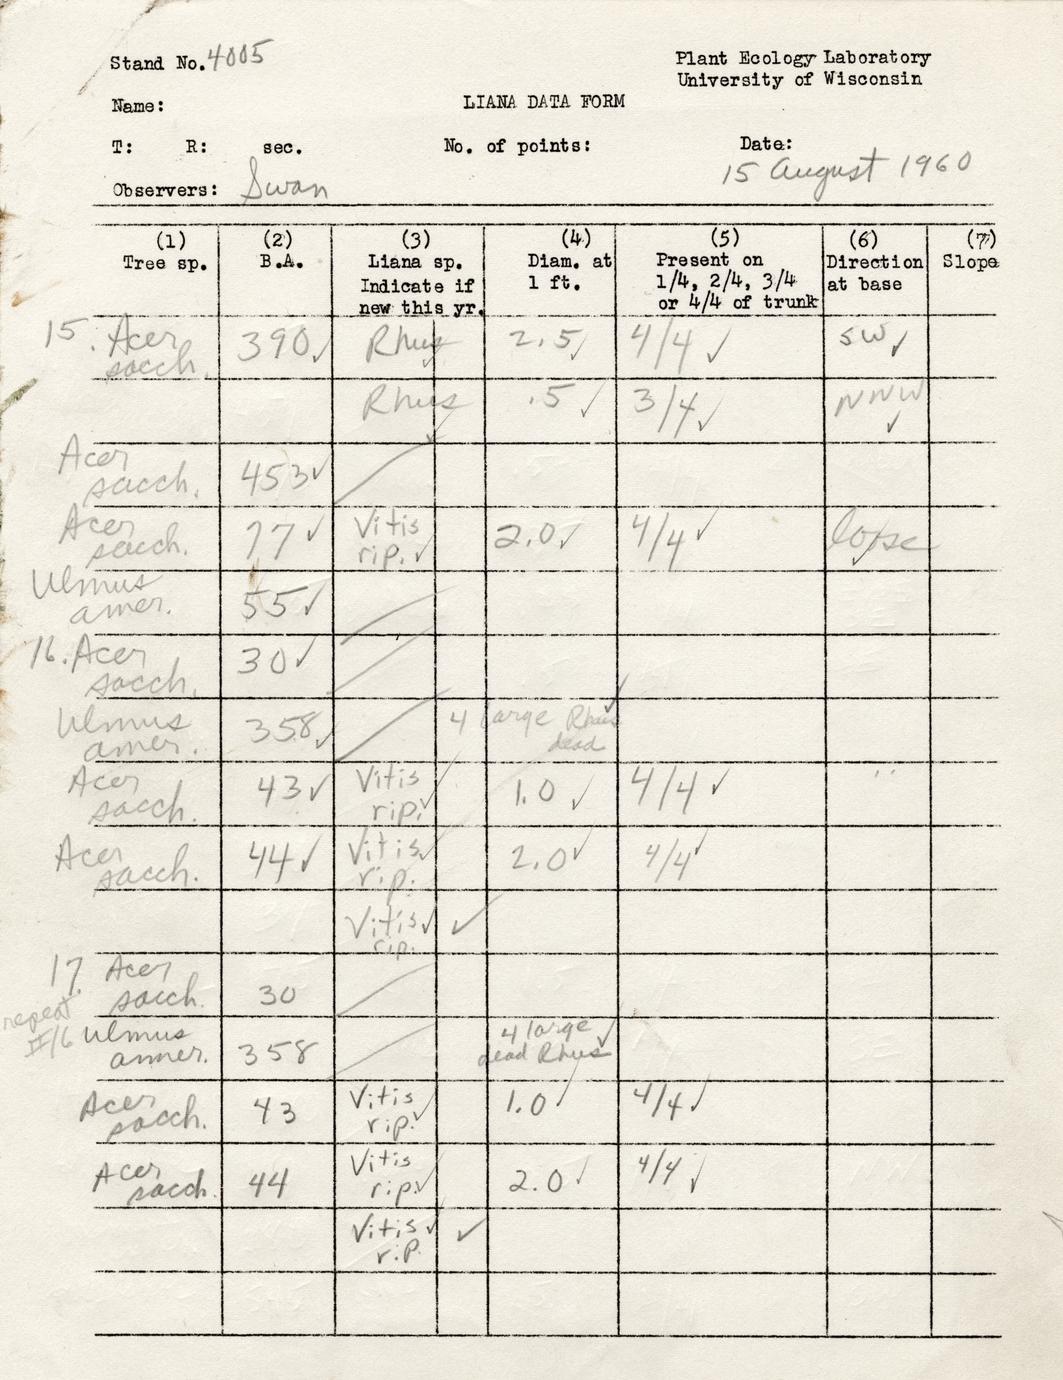 Stand No. 4005
Plant Ecology Laboratory
University of Wisconsin
Name:
LIANA DATA FORM
T: R: sec. No. of points: Date:
15 August 1960
Observers: Swan
(1) (2) (3) (4) (5) (6) (7)
Tree sp. B.A. Liana sp. Diam. at Present on Direction Slope
Indicate if 1 ft. 1/4, 2/4, 3/4 at base
new this yr. or 4/4 of trunk
15. Acer 390 ✓ Rhus ✓ 2.5 ✓ 4/4 ✓ SW ✓
sacch.
Rhus ✓ .5 ✓ 3/4 ✓ NNW ✓
Acer
sacch. 453 ✓
Acer 77 ✓ Vitis 2.0 ✓ 4/4 ✓ loose ✓
sacch. rip. ✓
Ulmus
amer. 55 ✓
16. Acer 30 ✓
sacch.
Ulmus 358 ✓ 4 large Rhus ✓
amer. dead
Acer 43 ✓ Vitis 1.0 ✓ 4/4 ✓ "
sacch. rip. ✓
Acer 44 ✓ Vitis ✓ 2.0 ✓ 4/4 ✓
sacch. rip.
Vitis ✓ ✓
rip.
17. Acer
sacch. 30
repeat
#16 Ulmus 4 large ✓
amer. 358 dead Rhus
Acer 43 Vitis 1.0 ✓ 4/4 ✓
sacch. rip. ✓
Acer 44 Vitis 2.0 ✓ 4/4 ✓
sacch. rip. ✓
Vitis ✓ ✓
rip.